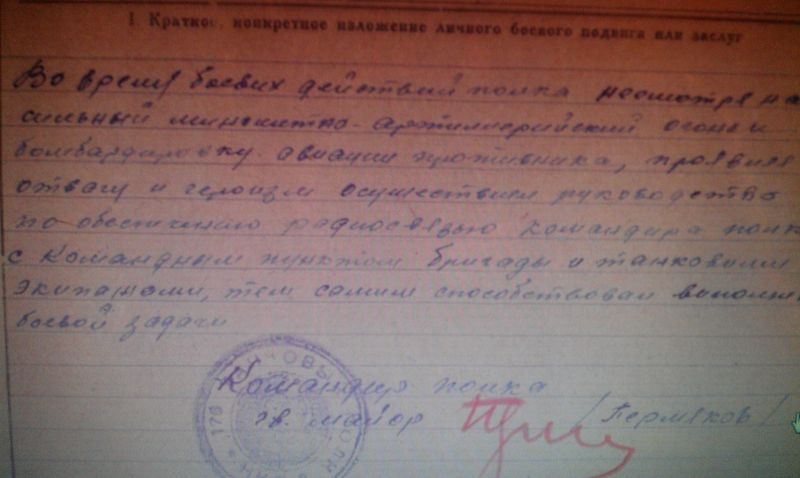 I. Краткое, конкретное изложение личного боевого подвига или заслуг
Во время боевых действий полка несмотря на
сильный минометно-артиллерийский огонь и
бомбардировку авиации противника, проявив
отвагу и героизм осуществлял руководство
по обеспечению радиосвязью командира полка
с Командным пунктом бригады и танковыми
экипажами, тем самим способствовал выполн
боевой задачи
Командир полка
гв. майор /Пермяков/
178